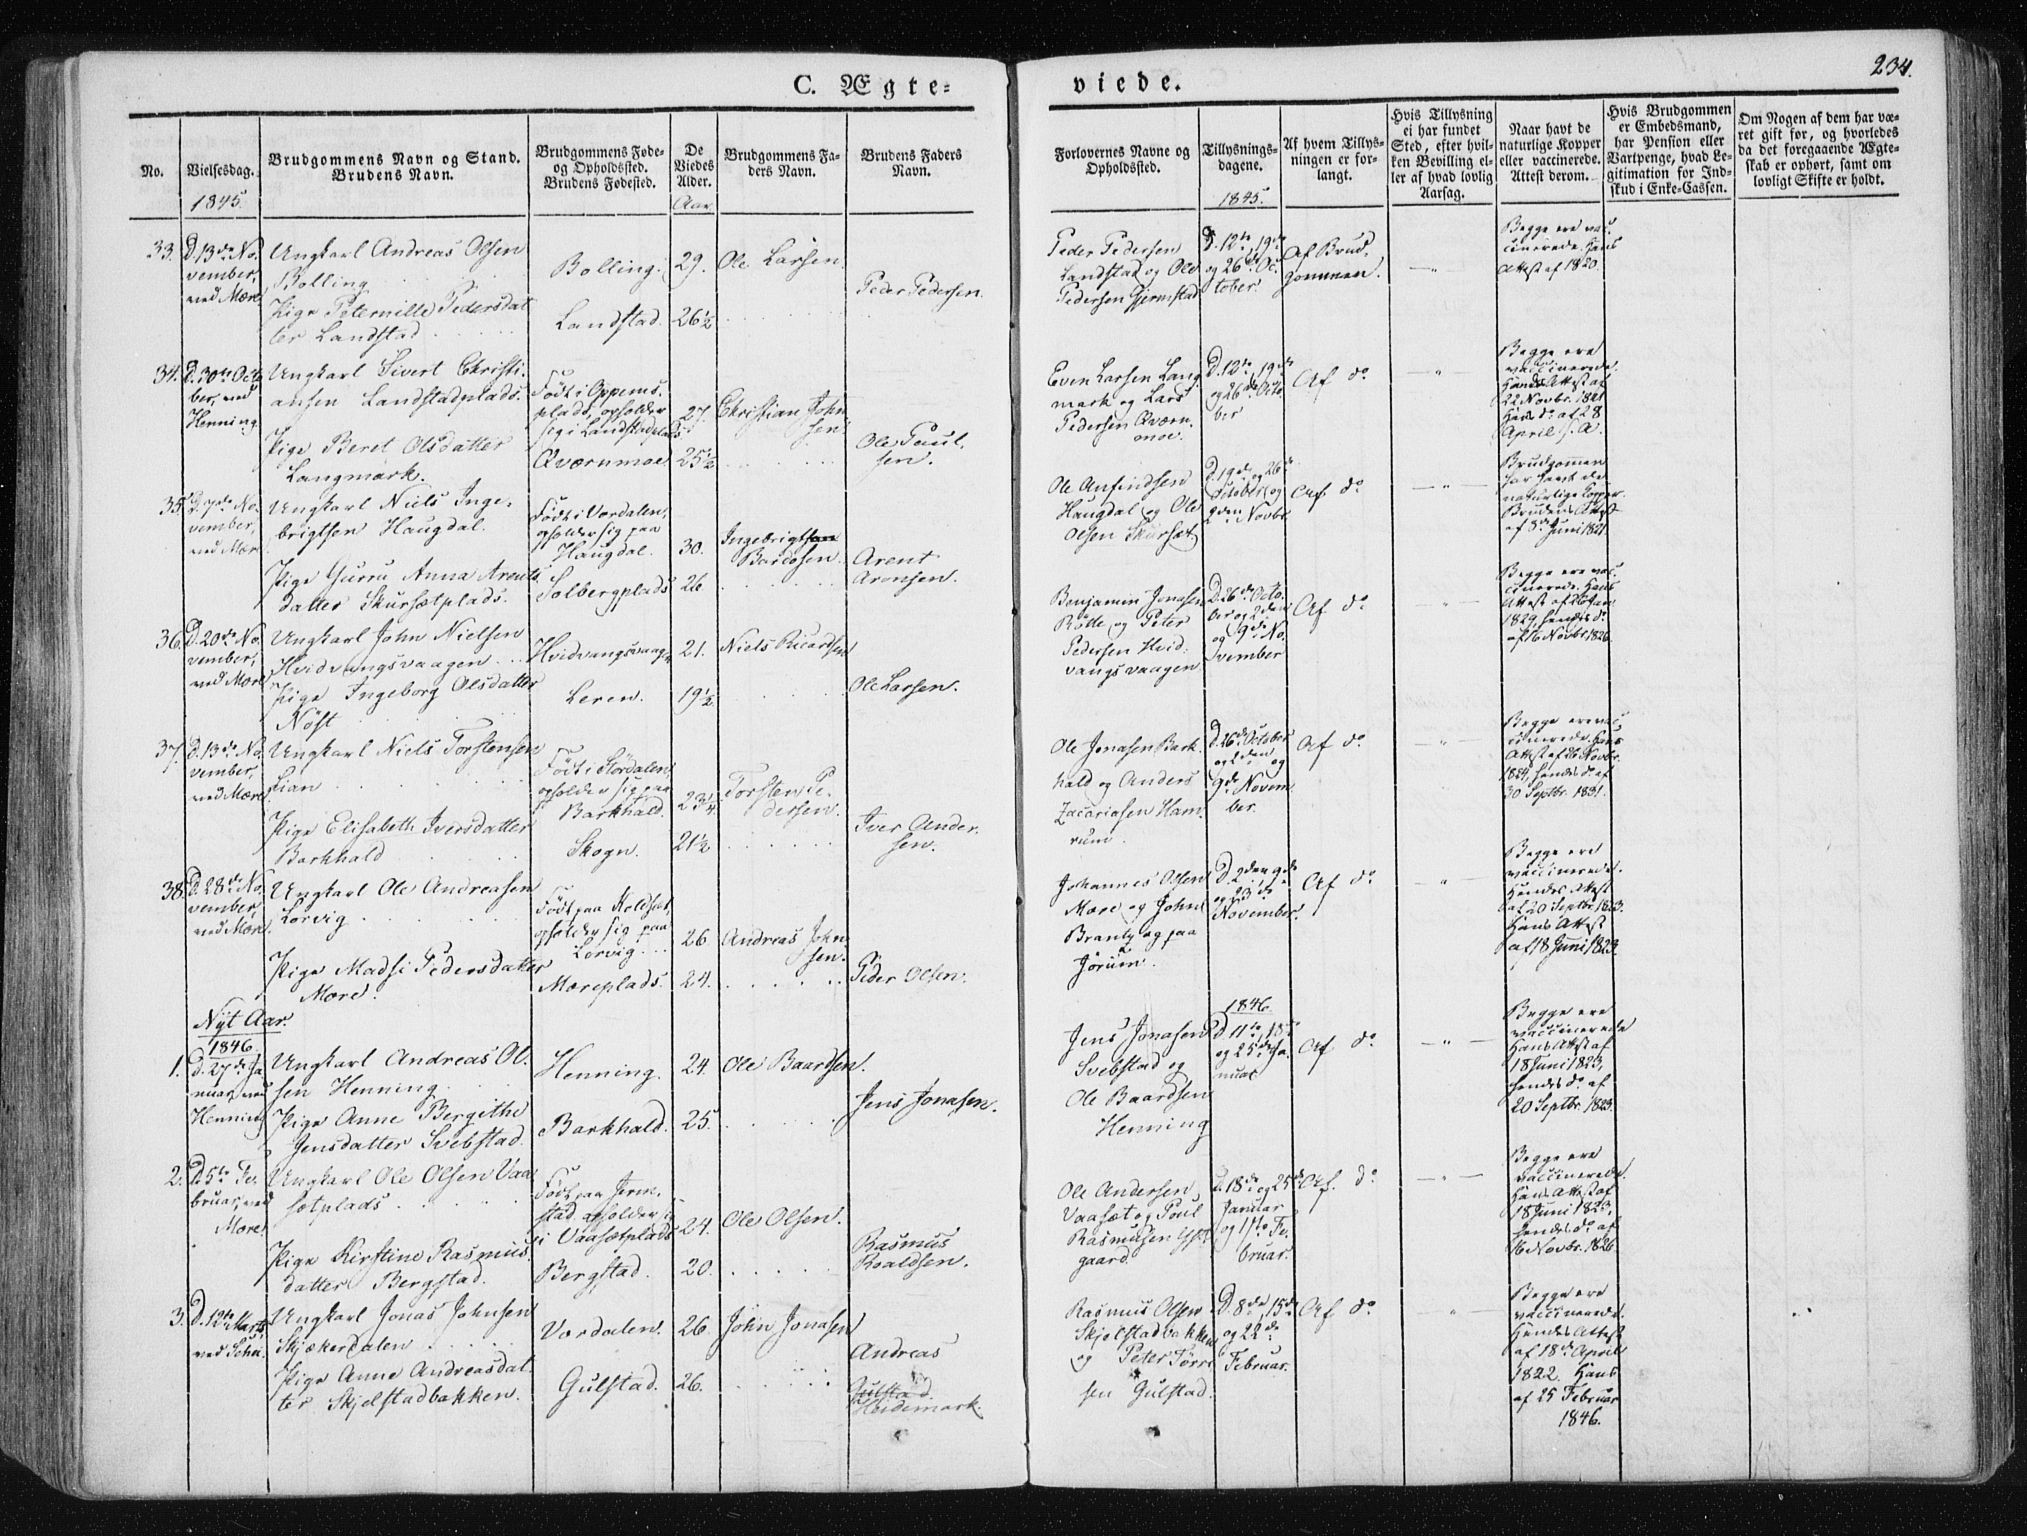 234.
C. Ægte=
viede.
No.
Vielsesdag.
1845.
Brudgommens Navn og Stand.
Brudens Navn.
Brudgommens Føde-
og Opholdssted.
Brudens Fødested.
De
Viedes
Alder.
Aar.
Brudgommens Fa-
ders Navn.
Brudens Faders
Navn.
Forlovernes Navne og
Opholdssted.
Tillysnings-
dagene.
1845.
Af hvem Tillys-
ningen er for-
langt.
Hvis Tillysning
ei har fundet
Sted, efter hvil-
ken Bevilling el-
ler af hvad lovlig
Aarsag.
Naar havt de
naturlige Kopper
eller vaccinerede.
Attest derom.
Hvis Brudgommen
er Embedsmand,
har Pension eller
Vartpenge, hvad Le-
gitimation for Ind-
skud i Enke-Cassen.
Om Nogen af dem har væ-
ret gift før, og hvorledes
da det foregaaende Ægte-
skab er ophørt, samt om
lovligt Skifte er holdt.
33.
D. 13de No-
vember,
ved Mære
Ungkarl Andreas Olsen
Bolling
Pige Peternille Pedersdat
ter Landstad
Bolling.
Landstad.
29.
26½
Ole Larsen.
Peder Pedersen.
Peder Pedersen
Landstad og Ole
Pedersen Gjermstad
D. 12te, 19de
og 26de Oc-
tober.
Af Brud-
gommen.
Begge ere vac-
cinerede. Hans
Attest af 1820.
34.
D. 30te Octo
ber, ved
Henning
Ungkarl Sivert Christi-
ansen Landstadplads.
Pige Beret Olsdatter
Langmark.
Født i Oppems-
plads, opholder
sig i Landstadplads
Qværnmoe
27.
25½
Christian John
sen
Ole Paul-
sen.
Even Larsen Lang
mark og Lars
Pedersen Qværn-
moe.
D. 12te, 19de
og 26de Octo
ber
Af do
Begge ere
vaccinerede.
Hendes Attest af
22 Novbr. 1821
Hans do af 28
April s. A.
35.
D. 7de No-
vember,
ved Mære
Ungkarl Niels Inge-
brigtsen Haugdal.
Pige Gurru Anna Arents
datter Skursætplads.
Født i Vordalen,
opholder sig paa
Haugdal.
Solbergplads
30.
26
Ingebrigtsen
Bardosen.
Arent
Aronsen.
Ole Anfindsen
Haugdal og Ole
Olsen Skursæt.
D. 19de og 26de
October og
2den Novbr.
Af do
Brudgommen
har havt de
naturlige Kopper.
Brudens Attest
af 8de Juni 1821
36.
D. 20de No-
vember,
ved Mære
Ungkarl John Nielsen
Hvidvangsvaagen
Pige Ingeborg Olsdatter
Nøst
Hvidvangsvaagen
Leren.
21.
19½
Niels Ricardsen
Ole Larsen.
Benjamin Jonasen
Rølle og Peter
Pedersen Hvid-
vangsvaagen
D. 26de Octo-
ber og 2den
og 9de No-
vember
Af do
Begge ere vac-
cinerede. Hans
Attest af 26 Jan
1829, hendes do
af 16 Novbr 1826.
37.
D. 13de No-
vember,
ved Mære
Ungkarl Niels Torstensen
Lian
Pige Elisabeth Iversdatter
Barkhald
Født i Stordalen,
opholder sig paa
Barkhald.
Skogn.
23¼
21½
Torsten Pe-
dersen.
Iver Ander-
sen.
Ole Jonasen Bark
hald og Anders
Zacariasen Ham-
rum.
D. 26de October
og 2den og
9de Novem
ber.
Af do
Begge ere vac-
cinerede. Hans
Attest af 26 Novbr.
1824, hendes do af
30 Septbr. 1831.
38.
D. 28de No-
vember,
ved Mære.
Ungkarl Ole Andreasen
Lorvig
Pige Madsi Pedersdatter
Mære.
Født paa Holdsæt,
opholder sig paa
Lorvig
Mæreplads.
26
24.
Andreas John
sen.
Peder Olsen.
Johannes Olsen
Mære og John
Brandtz og paa
Jørum.
D. 2den, 9de
og 23de
November.
Af do
Begge ere
vaccinerede.
Hendes Attest
af 20 Septbr. 1823.
Hans Attest
af 18 Juni 1823.
Nyt Aar.
1846.
1.
D. 27de Ja
nuar, ved
Henning
Ungkarl Andreas Ol-
sen Henning
Pige Anne Bergithe
Jensdatter Svebstad.
Henning.
Barkhald.
24.
25.
Ole Baardsen.
Jens Jonasen.
Jens Jonasen
Svebstad og
Ole Baardsen
Henning
1846.
D. 11te, 18de
og 25de Ja-
nuar.
Af do
Begge ere
vaccinerede
Hans Attest af
18 Juni 1823,
hendes do af
20 Septbr. 1823.
2.
D. 5te Fe-
bruar, ved
Mære.
Ungkarl Ole Olsen Vaa
sætplads
Pige Kirstine Rasmus-
datter Bergstad.
Født paa Jerm-
stad, opholder sig
i Vaasætplads
Bergstad.
24.
20.
Ole Olsen.
Rasmus
Roaldsen.
Ole Andersen
Vaasæt og Poul
Rasmusen
gaard.
D. 18de og 25de
Januar
og 1ste Fe-
bruar.
Af do
Begge ere
vaccinerede.
Hans Attest af
18 Juni 1823,
hendes do af
16 Novbr. 1826.
3.
D. 12te Marts
ved
Ungkarl Jonas Johnsen
Skjækerdalen
Pige Anne Andreasdat
ter Skjelstadbakken.
Vordalen.
Gulstad.
26
26.
John Jonasen
Andreas
Gulstad.
Heidemark.
Rasmus Olsen
Skjelstadbakken
og Peter Tørri
sen Gulstad.
D. 8de, 15de
og 22de
Februar.
Af do
Begge ere
vaccinerede.
Hendes Attest
af 18de April
1822. Hans
af 25 Februar
1846.